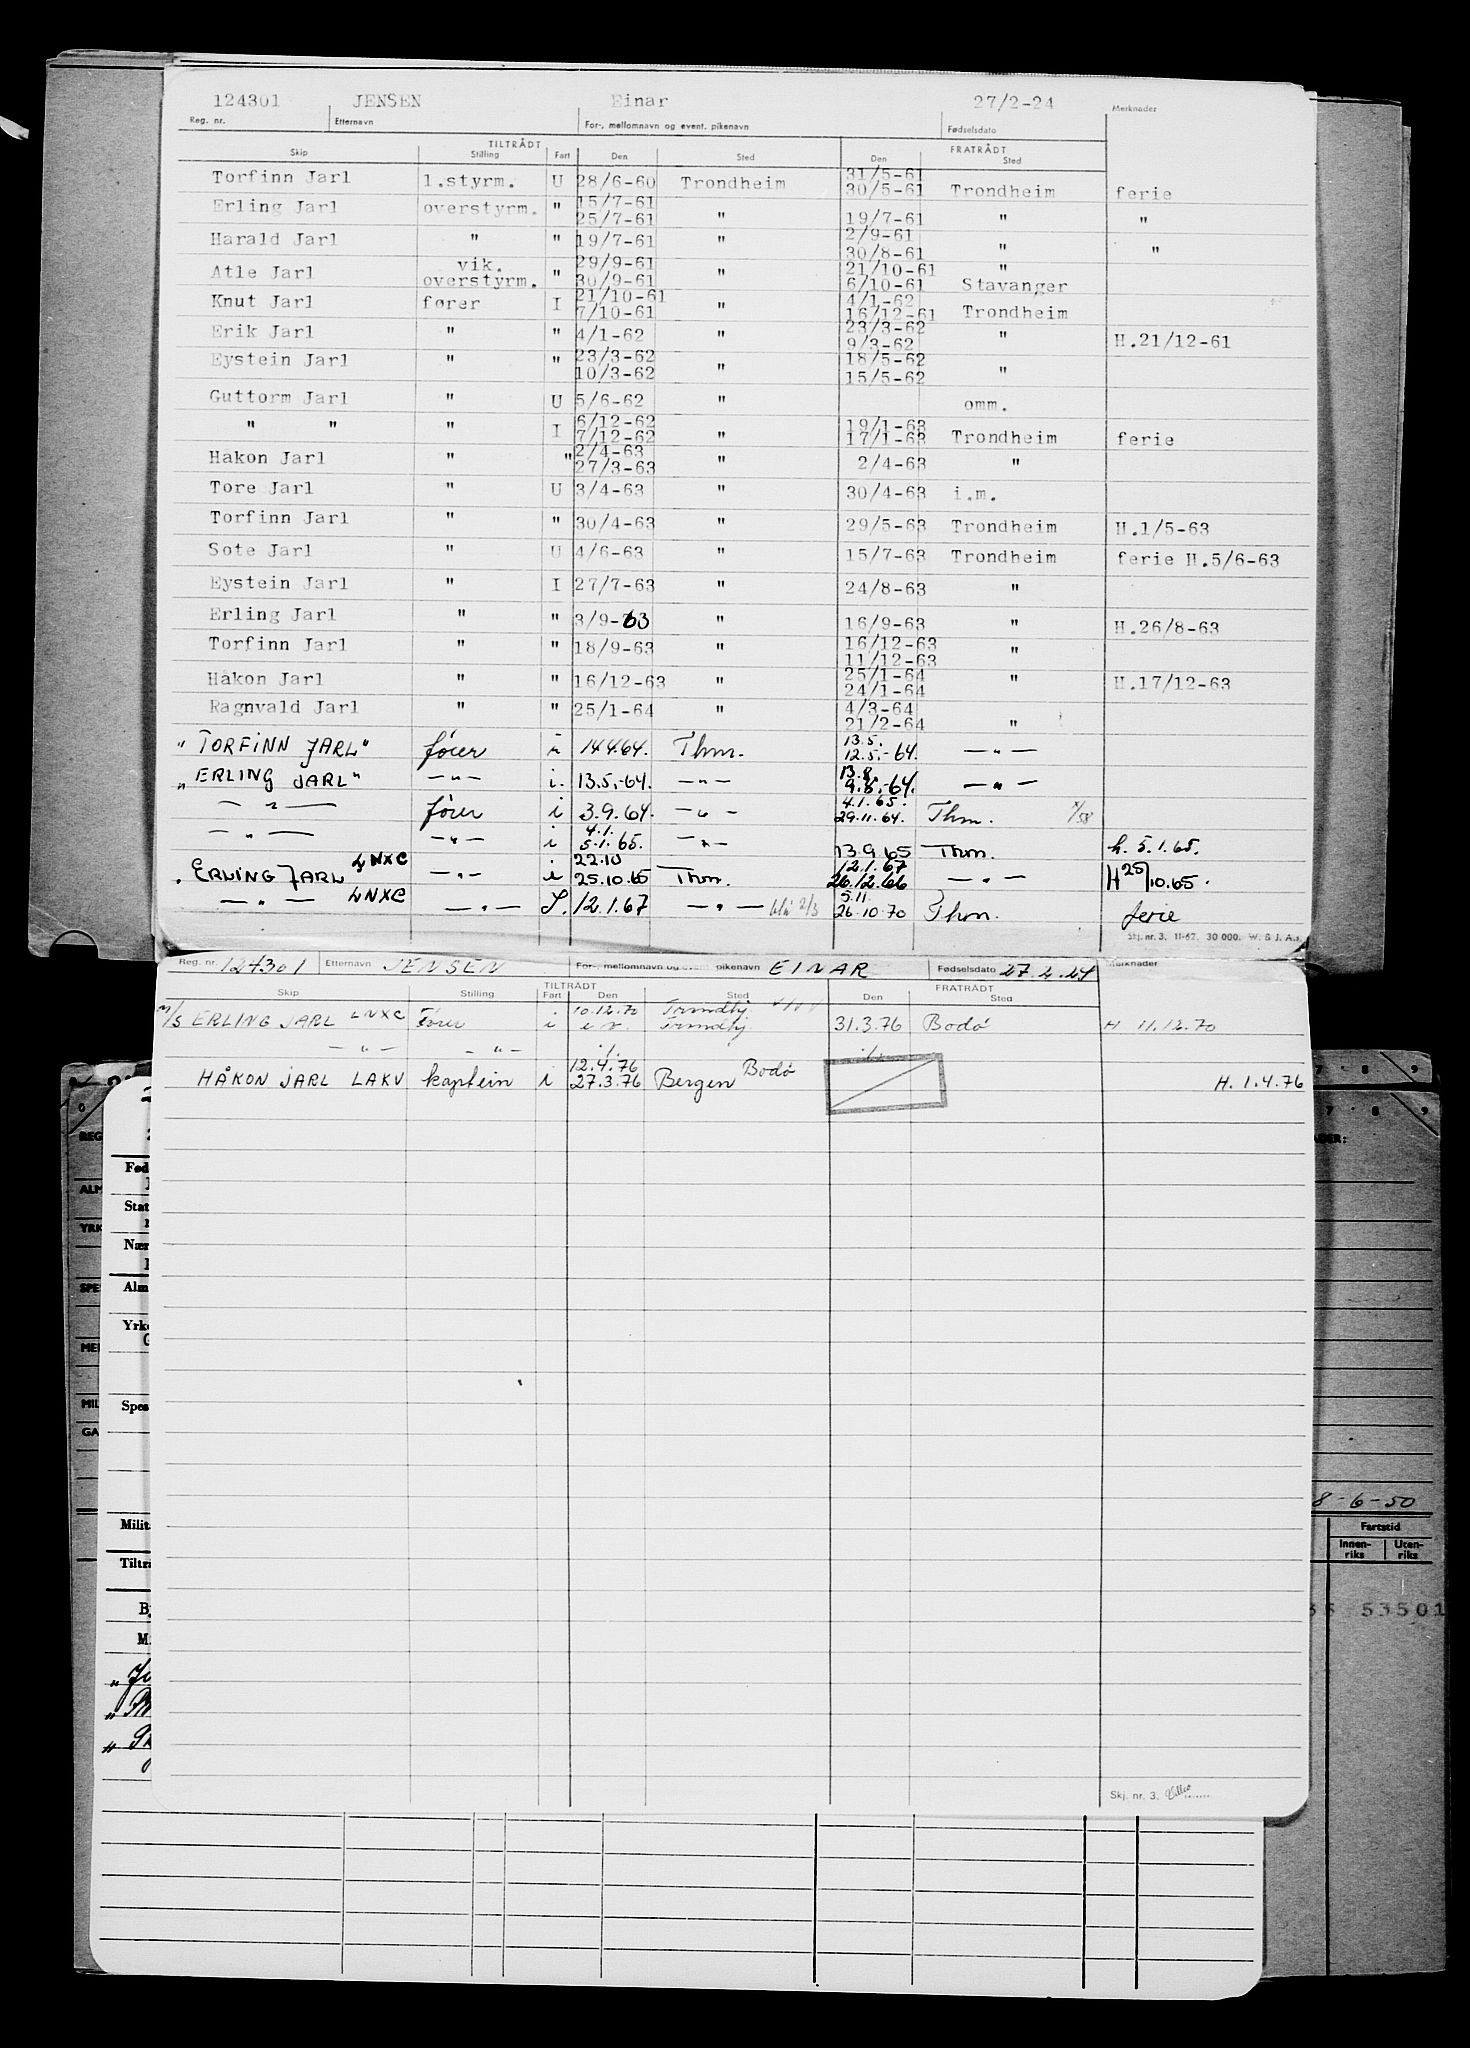 124301 JENSEN Einar 27/2-24 Merknader
Reg. nr. Etternavn For-, mellomnavn og event. pikenavn Fødselsdato
TILTRÅDT FRATRÅDT
Skip Stilling Fart Den Sted Den Sted
31/5-61
Torfinn Jarl 1.styrm. U 28/6-60 Trondheim 30/5-61 Trondheim ferie
15/7-61
Erling Jarl overstyrm. " 25/7-61 " 19/7-61 " "
2/9-61
Harald Jarl " " 19/7-61 " 30/8-61 " "
vik. 29/9-61 21/10-61 "
Atle Jarl overstyrm. " 30/9-61 " 6/10-61 Stavanger
21/10-61 4/1-62
Knut Jarl fører I 7/10-61 " 16/12-61 Trondheim
23/3-62
Erik Jarl " " 4/1-62 " 9/3-62 " H.21/12-61
23/3-62 18/5-62
Eystein Jarl " " 10/3-62 " 15/5-62 "
Guttorm Jarl " U 5/6-62 " omm.
6/12-62 19/1-63
" " " I 7/12-62 " 17/1-63 Trondheim ferie
2/4-63
Håkon Jarl " " 27/3-63 " 2/4-63 "
Tore Jarl " U 3/4-63 " 30/4-63 i.m.
Torfinn Jarl " " 30/4-63 " 29/5-63 Trondheim H.1/5-63
Sote Jarl " U 4/6-63 " 15/7-63 Trondheim ferie H.5/6-63
Eystein Jarl " I 27/7-63 " 24/8-63 "
Erling Jarl " " 3/9-63 " 16/9-63 " H.26/8-63
16/12-63
Torfinn Jarl " " 18/9-63 " 11/12-63 "
25/1-64
Håkon Jarl " " 16/12-63 " 24/1-64 " H.17/12-63
4/3-64
Ragnvald Jarl " " 25/1-64 " 21/2-64 "
13.5.
"TORFINN JARL" fører i 14.4.64. Thm. 12.5.-64. —"—
13.8.
"ERLING JARL" —"— i. 13.5.-64. —"— 9.8.-64. —"—
4.1.65.
—"— fører i 3.9.64. —"— 29.11.64. Thm.
4.1.
—"— —"— i 5.1.65. —"— 13.9.65 Thm. h. 5.1.65.
22.10 12.1.67
ERLING JARL LNXC —"— i 25.10.65 Thm. 26.12.66 —"— H 25/10.65.
5.11.
—"— LNXC —"— 12.1.67 —"— 26.10.70 Thm. ferie
Skj. nr. 3. 11-62. 30 000. W. & J. A.s.
Reg. nr. 124301 Etternavn JENSEN For-, mellomnavn og event. pikenavn EINAR Fødselsdato 27.2.24 Merknader
TILTRÅDT FRATRÅDT
Skip Stilling Fart Den Sted Den Sted
10.12.70 Trondhj.
M/S ERLING JARL LNXC Fører i Trondhj. 31.3.76 Bodø H 11.12.70
—"— —"— ./. ./.
12.4.76 Bodø
HÅKON JARL LAKV kaptein i 27.3.76 Bergen H. 1.4.76
Skj. nr. 3.
REG
Fød
ALM
Stat
YRK
Nær
SPE
Alm
Yrke
MEI
MIL
Spes
GA
8-6-50
Milit
Fartstid
Tiltrå
Innen-riks Uten-riks
53501
7 8 9
7 8 9